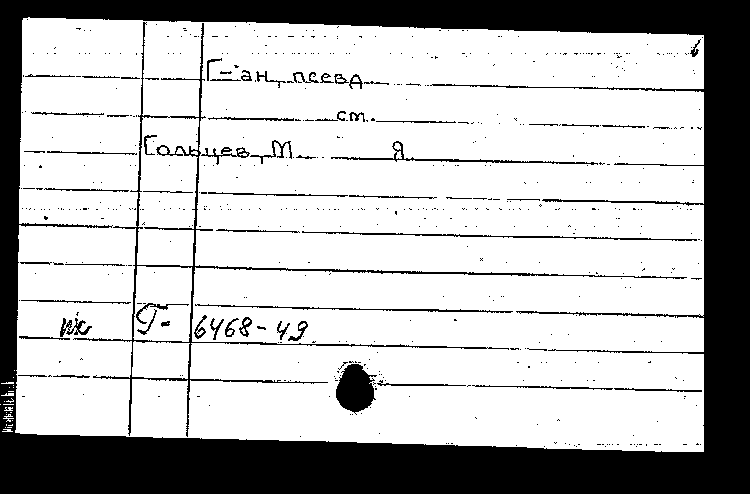 Г-ан, псевд.
см.
Гольцев, М. Я.
Г- 6468-49